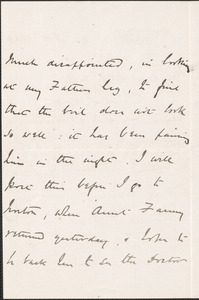 much disappointed, in looking
at my Father's leg, to find
that the boil does not look
so well: it has been paining
him in the night. I will
post this before I go to
Norton, where Aunt Fanny
returned yesterday, & hope to
be back here to see the Doctor